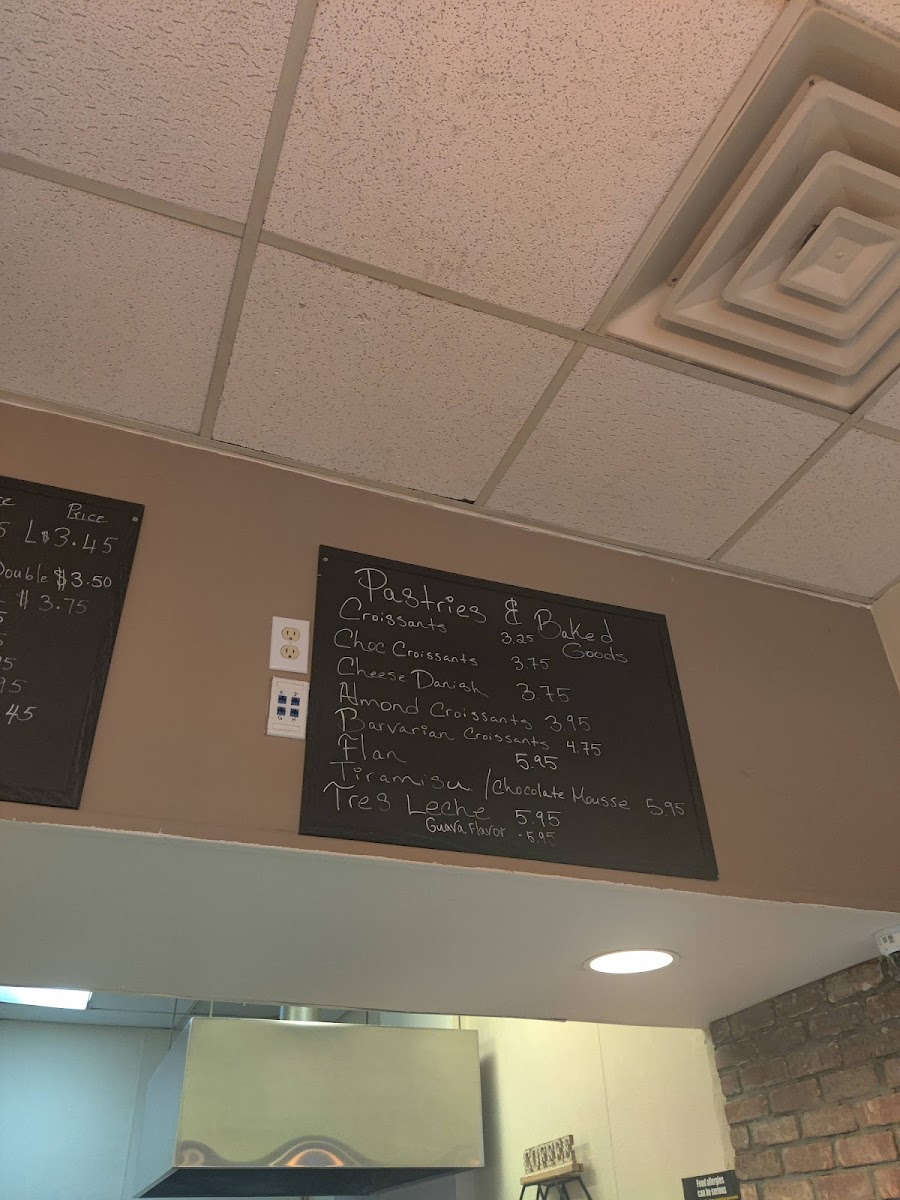 Price
L $3.45
Double $3.50
$ 3.75
95
45
Pastries & Baked Goods
Croissants 3.25
Choc Croissants 3.75
Cheese Danish 3.75
Almond Croissants 3.95
Barvarian Croissants 4.75
Flan 5.95
Tiramisu /Chocolate Mousse 5.95
Tres Leche 5.95
Guava Flavor - 5.95
COFFEE
Food allergies
can be serious